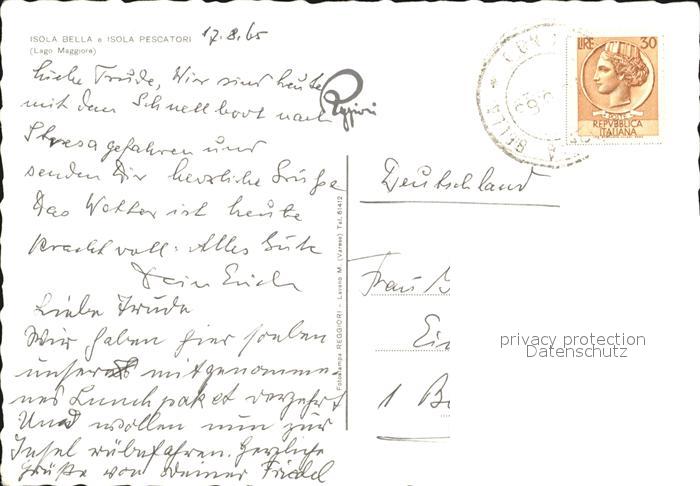 ISOLA BELLA e ISOLA PESCATORI
(Lago Maggiore)
17.8.65
Liebe Trude, Wir sind heute
mit dem Schnellboot nach
Stresa gefahren und
senden Dir herzliche Grüße
Das Wetter ist heute
Prachtvoll. Alles Gute
Dein Erich
Liebe Trude
Wir haben hier soeben
unser mitgenomme-
nes Lunchpaket verzehrt
Und wollen nun zur
Insel rüberfahren. Herzliche
Grüße von Deiner Friedel
Reggiori
Fotostampa REGGIORI - Laveno M. (Varese) Tel. 61412
BELLA
LIRE 30
POSTE
REPVBBLICA
ITALIANA
Deutschland
Frau
1 Be
privacy protection
Datenschutz